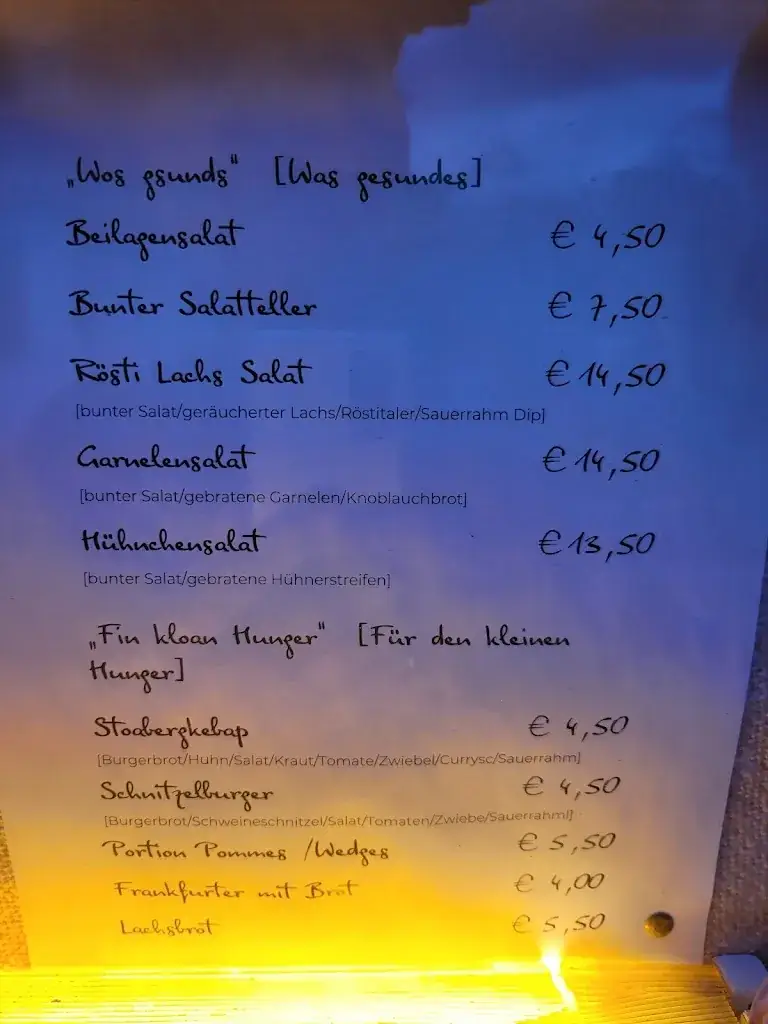 „Wos gsunds“ [Was gesundes]
Beilagensalat € 4,50
Bunter Salatteller € 7,50
Rösti Lachs Salat € 14,50
[bunter Salat/geräucherter Lachs/Röstitaler/Sauerrahm Dip]
Garnelensalat € 14,50
[bunter Salat/gebratene Garnelen/Knoblauchbrot]
Hühnchensalat € 13,50
[bunter Salat/gebratene Hühnerstreifen]
„Fin kloan Hunger“ [Für den kleinen
Hunger]
Stoabergkebap € 4,50
[Burgerbrot/Huhn/Salat/Kraut/Tomate/Zwiebel/Currysc/Sauerrahm]
Schnitzelburger € 4,50
[Burgerbrot/Schweineschnitzel/Salat/Tomaten/Zwiebe/Sauerrahm]]
Portion Pommes /Wedges € 5,50
Frankfurter mit Brot € 4,00
Lachsbrot € 5,50